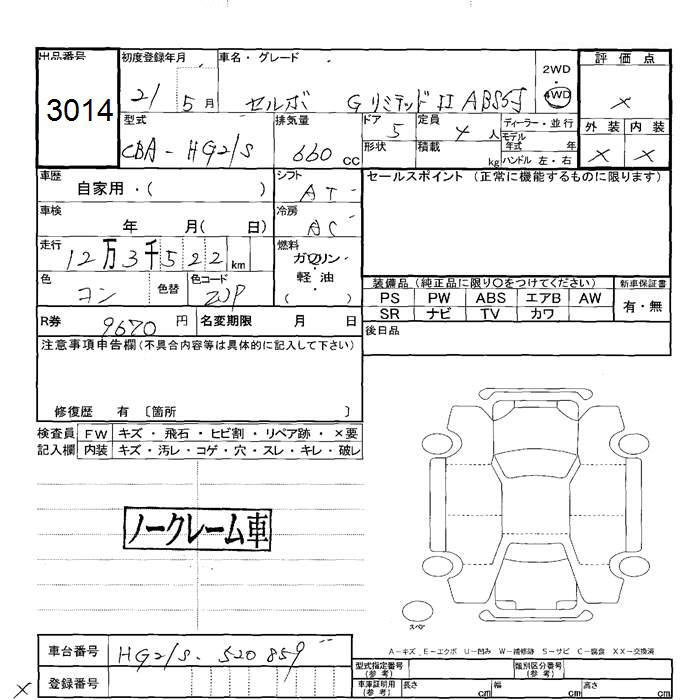 出品番号
3014
初度登録年月 車名・グレード
21 5月 セルボ G リミテッドⅡ ABS5F
2WD
4WD
評価点
×
外装 内装
× ×
型式
CBA-HG21S
排気量
660 CC
ドア 5 定員 4人
形状 積載 kg
ディーラー・並行
モデル年式 年
ハンドル 左・右
車歴
自家用・( )
シフト
AT
セールスポイント (正常に機能するものに限ります)
車検
年 月( 日)
冷房
AC
走行
12万3千522km
燃料
ガソリン・
軽油・
( )
色
コン
色替
色コード
ZJP
装備品(純正品に限り○をつけてください) 新車保証書
PS PW ABS エアB AW
SR ナビ TV カワ
有・無
R券 9670円 名変期限 月 日
後日品
注意事項申告欄(不具合内容等は具体的に記入して下さい)
修復歴 有 〔箇所 〕
検査員 FW キズ・飛石・ヒビ割・リペア跡・×要
記入欄 内装 キズ・汚レ・コゲ・穴・スレ・キレ・破レ
ノークレーム車
スペア
A-キズ E-エクボ U-凹み W-補修跡 S-サビ C-腐食 XX-交換済
車台番号 HG21S-520859
× 登録番号
型式指定番号(参考) 類別区分番号(参考)
車庫証明用(参考) 長さ cm 幅 cm 高さ cm